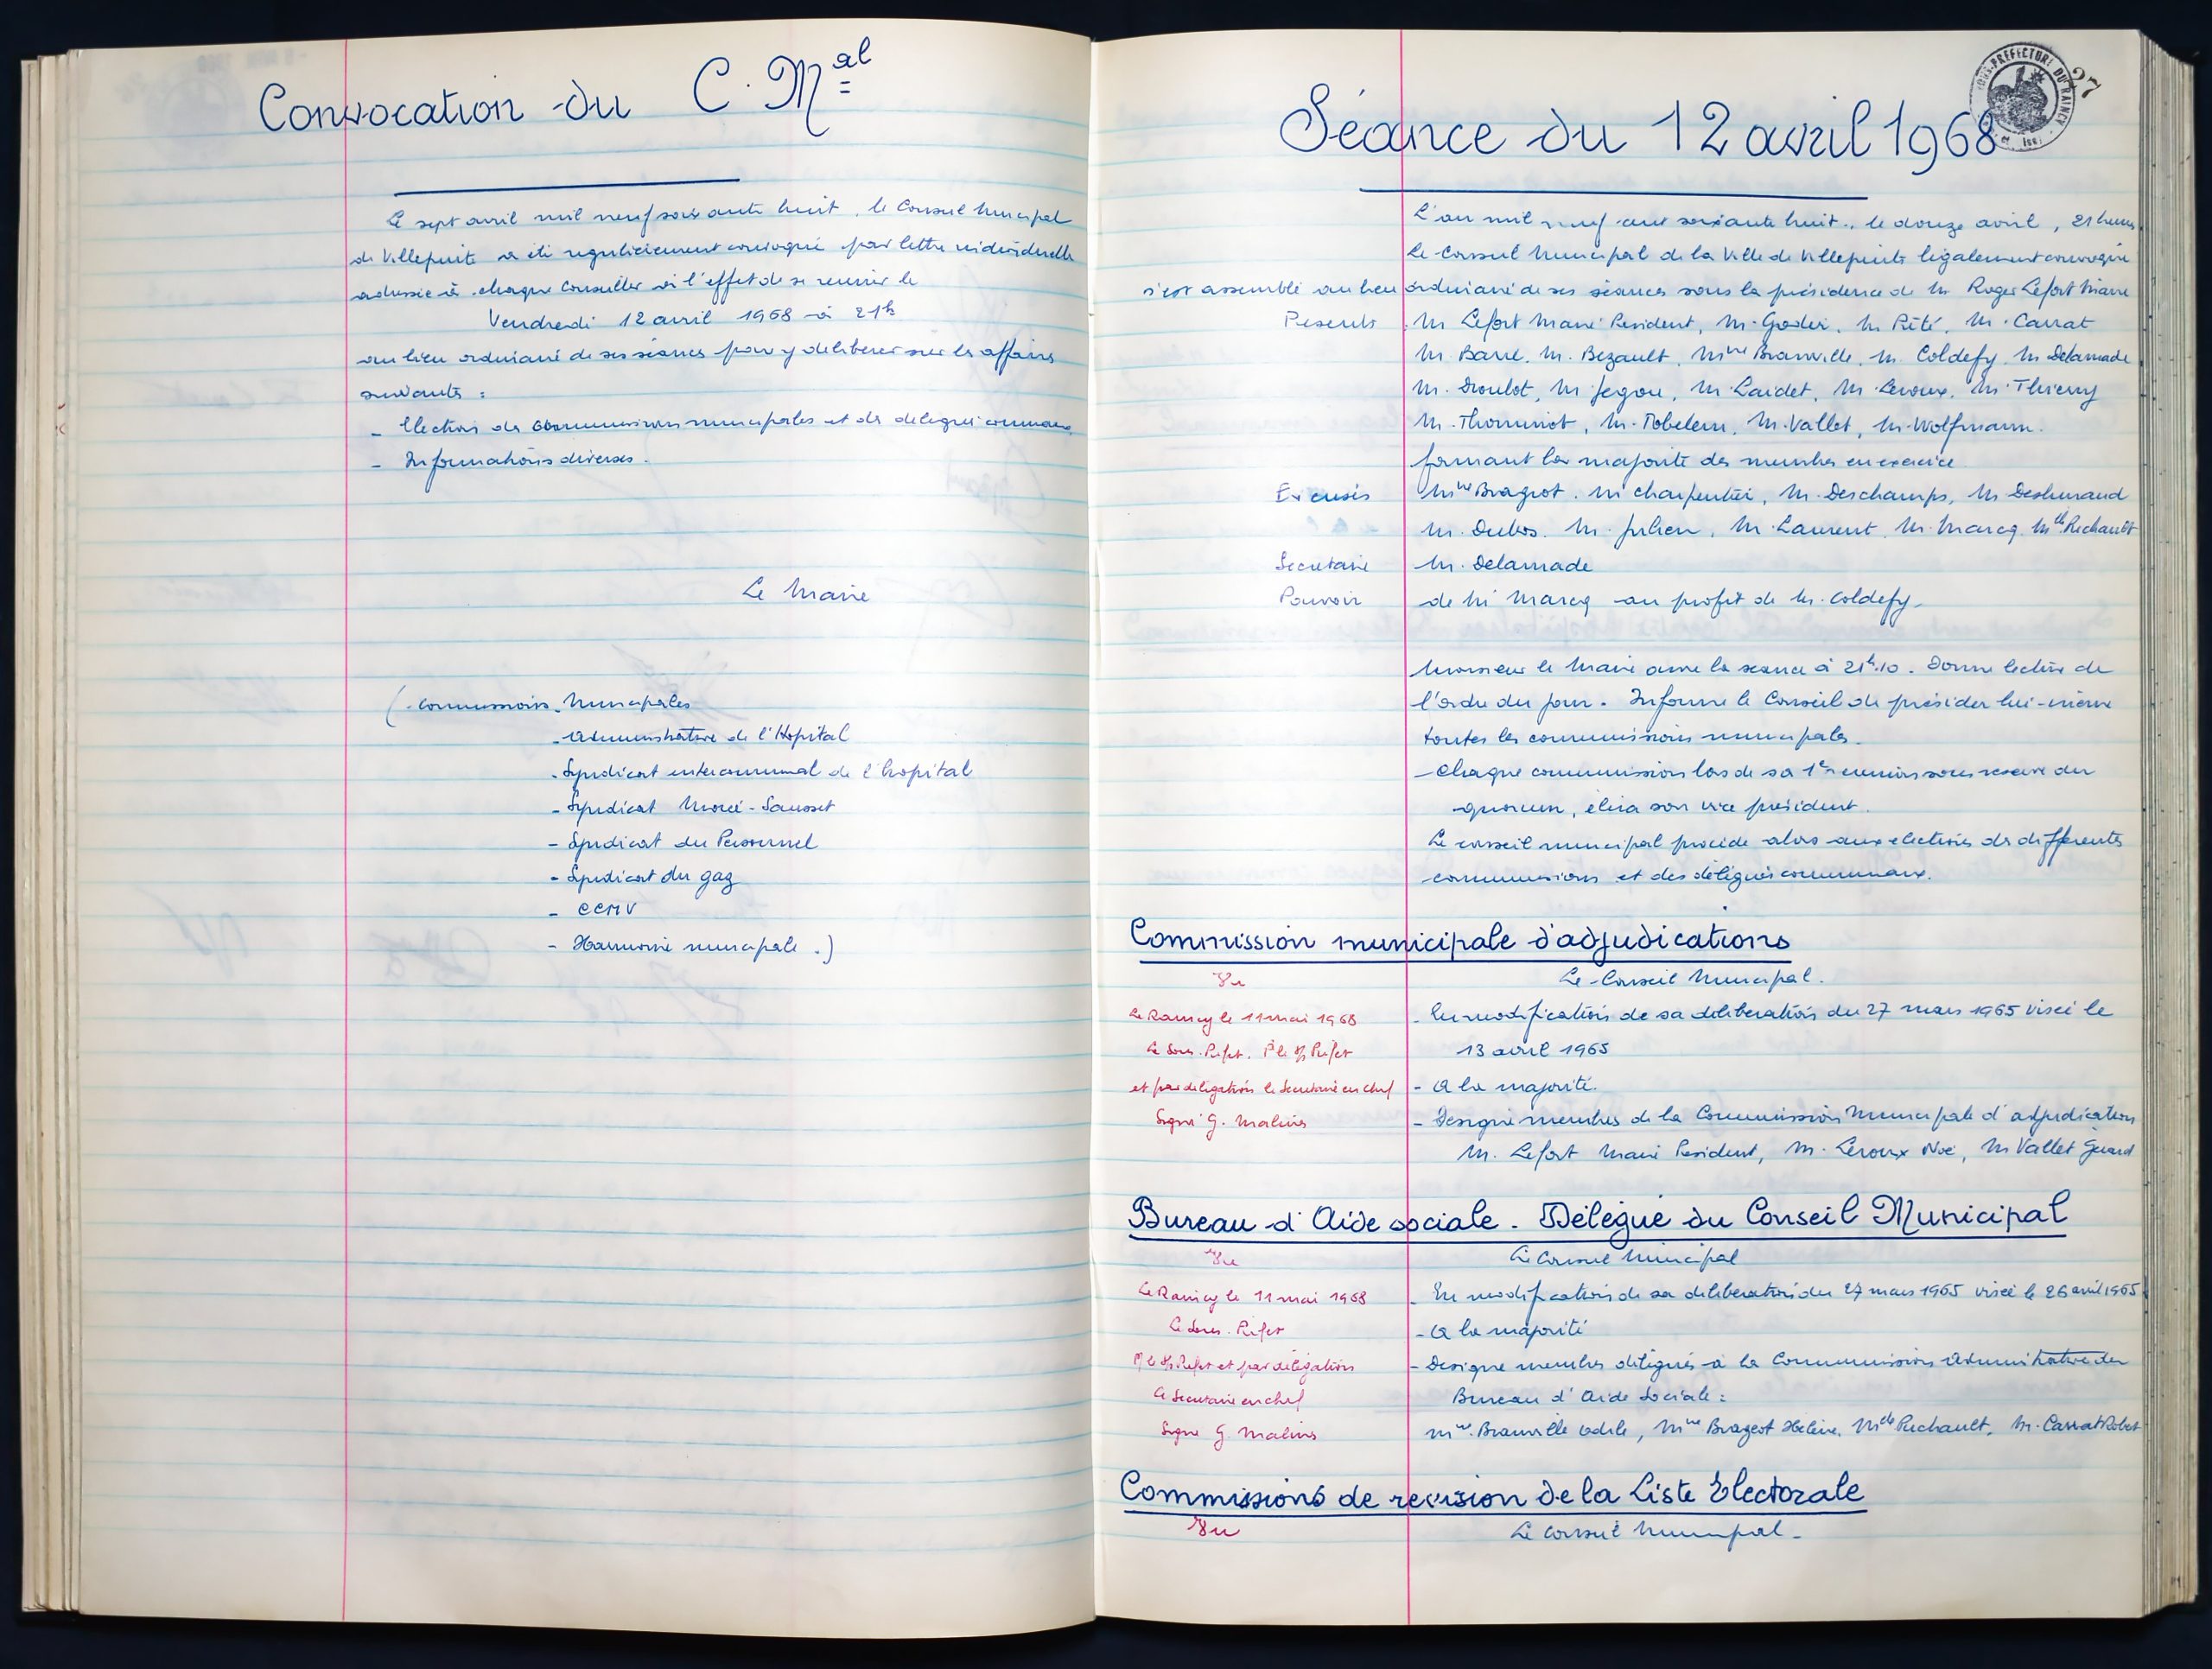 Convocation du C. Mal
Le sept avril mil neuf soixante huit, le Conseil Municipal
de Villepinte a été regulièrement convoqué par lettre individuelle
adressée à chaque Conseiller à l'effet de se reunir le
Vendredi 12 avril 1968 à 21h
au lieu ordinaire de ses séances pour y deliberer sur les affaires
suivantes :
- Election des Commissions municipales et des délégués communaux
- Informations diverses.
Le Maire
( Commissions Municipales
- Administrative de l'Hopital
- Syndicat intercommunal de l'hopital
- Syndicat Morée - Sausset
- Syndicat du Personnel
- Syndicat du gaz
- CCMV
- Harmonie municipale .)
SOUS-PRÉFECTURE DU RAINCY
27
Séance du 12 avril 1968
L'an mil neuf cent soixante huit, le douze avril, 21 heures
Le Conseil Municipal de la Ville de Villepinte légalement convoqué
s'est assemblé au lieu ordinaire de ses séances sous la présidence de M. Roger Lefort Maire
Présents M. Lefort Maire Président, M. Godier, M. Pété, M. Carrat
M. Barre, M. Bezault, Mme Branville, M. Coldefy, M. Delamade
M. Droulot, M. Jegou, M. Laidet, M. Leroux, M. Thierry
M. Thominot, M. Tobelem, M. Vallet, M. Wolfmann.
formant la majorité des membres en exercice
Excusés Mme Brageot, M. Charpentier, M. Deschamps, M. Deshuraud
M. Dubos, M. Julien, M. Laurent, M. Marcq, Mlle Puchault
Secrétaire M. Delamade
Pouvoir de M. Marcq au profit de M. Coldefy.
Monsieur le Maire ouvre la seance à 21h10. Donne lecture de
l'ordre du jour. Informe le Conseil de présider lui-même
toutes les commissions municipales.
- Chaque commission lors de sa 1re reunion sous reserve du
quorum, élira son vice président.
Le conseil municipal procède alors aux elections des differentes
commissions et des délégués communaux.
Commission municipale d'adjudications
Vu Le Conseil Municipal.
Le Raincy le 11 mai 1968 - En modification de sa délibération du 27 mars 1965 visée le
Le Sous-Préfet. P le S/Préfet 13 avril 1965
et par délégation le Secrétaire en chef - A la majorité.
Signé G. Malines - Designe membres de la Commission Municipale d'adjudication
M. Lefort Maire President, M. Leroux Noé, M Vallet Gérard
Bureau d'Aide sociale - Délégué du Conseil Municipal
Vu Le Conseil Municipal
Le Raincy le 11 mai 1968 - En modification de sa deliberation du 27 mars 1965 visée le 26 avril 1965
Le Sous-Préfet - A la majorité
P le S/Préfet et par délégation - Designe membres délégués à la Commission Administrative du
Le Secrétaire en chef Bureau d'Aide Sociale :
Signé G. Malines Mme Branville Odile, Mme Brageot Hélène, Mlle Puchault, M. Carrat Robert
Commissions de revision de la Liste Electorale
Vu Le Conseil Municipal -